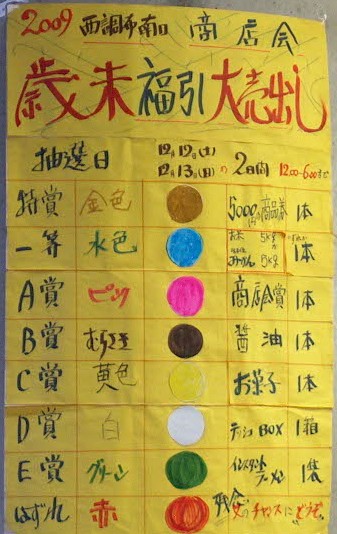 2009 西調布南口 商店会
歳末福引大売出し
抽選日 12月12日(土)
12月13日(日)の2日間 12:00-6:00まで
特賞 金色 5000円商品券 1本
一等 水色 お米 5kg みかん 5kg 1本
A賞 ピンク 商店会賞 1本
B賞 むらさき 醤油 1本
C賞 黄色 お菓子 1本
D賞 白 ティッシュBOX 1箱
E賞 グリーン インスタントラーメン 1袋
はずれ 赤 残念 次のチャンスにどうぞ